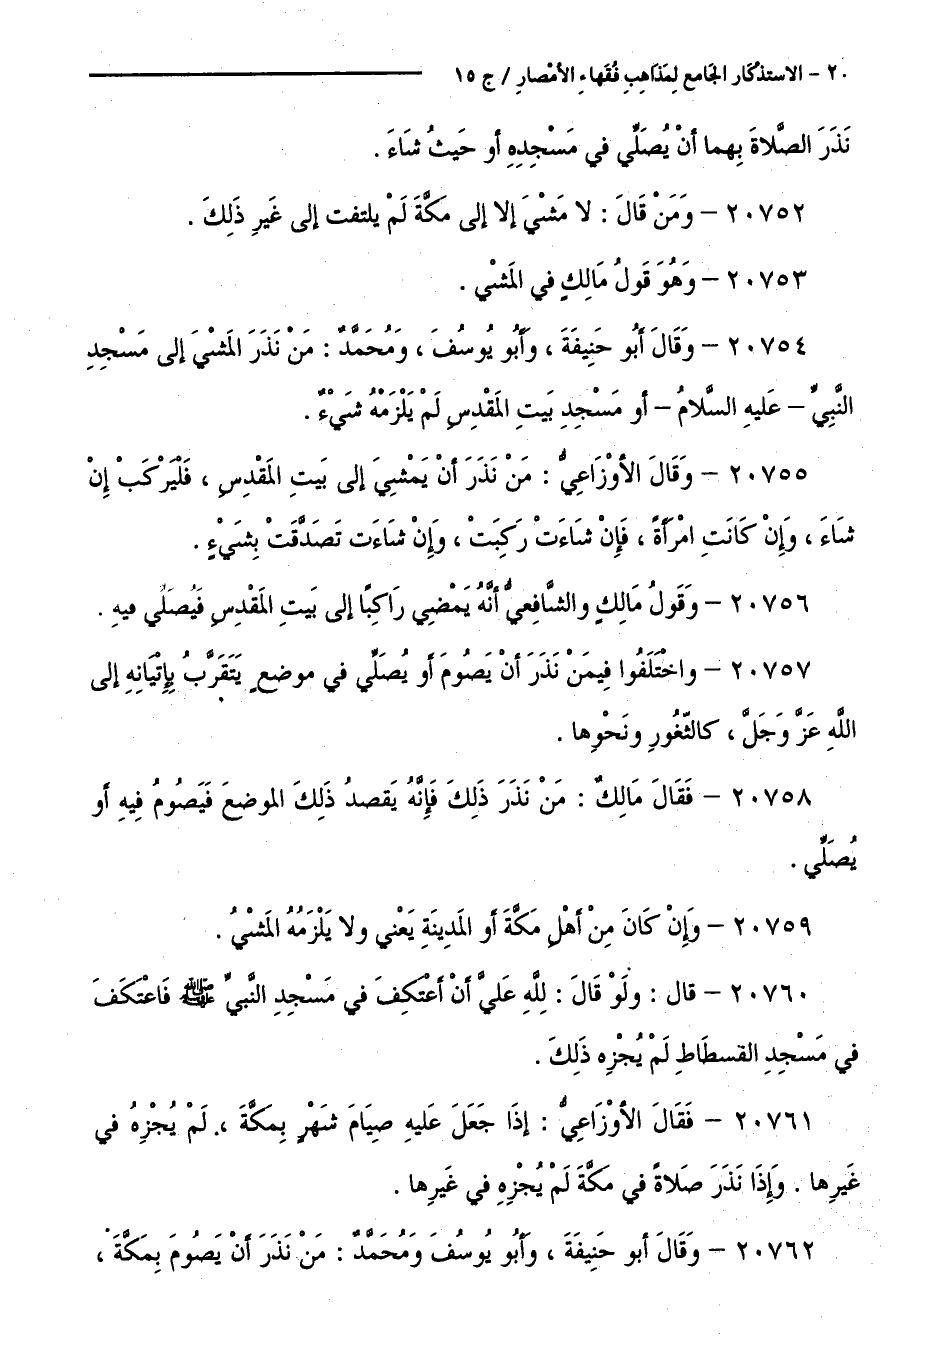 ٢٠ - الاستذكار الجامع لِمَذاهِبِ فُقَهاءِ الأمْصارِ / ج ١٥
نَذَرَ الصَّلاةَ بِهما أنْ يُصَلِّي في مَسْجِدِهِ أو حَيثُ شاءَ .
٢٠٧٥٢ - وَمَنْ قَالَ : لا مَشْيَ إلا إلى مَكَّةَ لَمْ يلتفت إلى غَيرِ ذَلِكَ .
٢٠٧٥٣ - وَهُوَ قَولُ مَالِكٍ في المَشْي .
٢٠٧٥٤ - وَقَالَ أَبُو حَنِيفَةَ ، وَأَبُو يُوسُفَ ، وَمُحَمَّدٌ : مَنْ نَذَرَ المَشْيَ إلى مَسْجِدِ
النَّبِيِّ - عَليهِ السَّلامُ - أو مَسْجِدِ بَيتِ المَقْدِسِ لَمْ يَلْزَمْهُ شَيْءٌ .
٢٠٧٥٥ - وَقَالَ الأوْزَاعِيُّ : مَنْ نَذَرَ أنْ يَمْشِيَ إلى بَيتِ المَقْدِسِ ، فَلْيَرْكَبْ إِنْ
شَاءَ ، وَإِنْ كَانَتِ امْرَأَةً ، فَإِنْ شاءَتْ رَكِبَتْ ، وَإِنْ شاءَت تَصَدَّقَتْ بِشَيْءٍ .
٢٠٧٥٦ - وَقَولُ مَالِكٍ والشَّافِعِيُّ أنَّهُ يَمْضِي رَاكِبًا إلى بَيتِ المَقْدِسِ فَيُصَلِّي فيهِ .
٢٠٧٥٧ - واخْتَلَفُوا فِيمَنْ نَذَرَ أنْ يَصُومَ أو يُصَلِّي في موضعٍ يَتَقَرَّبُ بِإِتْيَانِهِ إلى
اللَّهِ عَزَّ وَجَلَّ ، كالثّغُورِ ونَحْوِها .
٢٠٧٥٨ - فَقَالَ مَالِكٌ : مَنْ نَذَرَ ذَلِكَ فَإِنَّهُ يَقصدُ ذَلِكَ الموضعَ فَيَصُومُ فِيهِ أو
يُصَلِّي .
٢٠٧٥٩ - وَإِنْ كَانَ مِنْ أَهْلِ مَكَّةَ أو المَدِينَةِ يَعْني ولا يَلْزَمُهُ المَشْيُ .
٢٠٧٦٠ - قال : ولَوْ قَالَ : لِلَّهِ عَليَّ أنْ أَعْتكِفَ في مَسْجِدِ النَّبيِّ ﷺ فَاعْتكَفَ
في مَسْجِدِ القسطَاطِ لَمْ يُجْزِه ذَلِكَ .
٢٠٧٦١ - فَقَالَ الأوْزَاعِيُّ : إذَا جَعَلَ عَليهِ صِيَامَ شَهْرٍ بِمَكَّةَ ، لَمْ يُجْزِهُ في
غَيرِها . وَإِذَا نَذَرَ صَلاةً في مَكَّةَ لَمْ يُجْزِهِ في غَيرِها .
٢٠٧٦٢ - وَقَالَ أبو حَنِيفَةَ ، وَأَبُو يُوسُفَ وَمُحَمَّدٌ : مَنْ نَذَرَ أنْ يَصُومَ بِمَكَّةَ ،